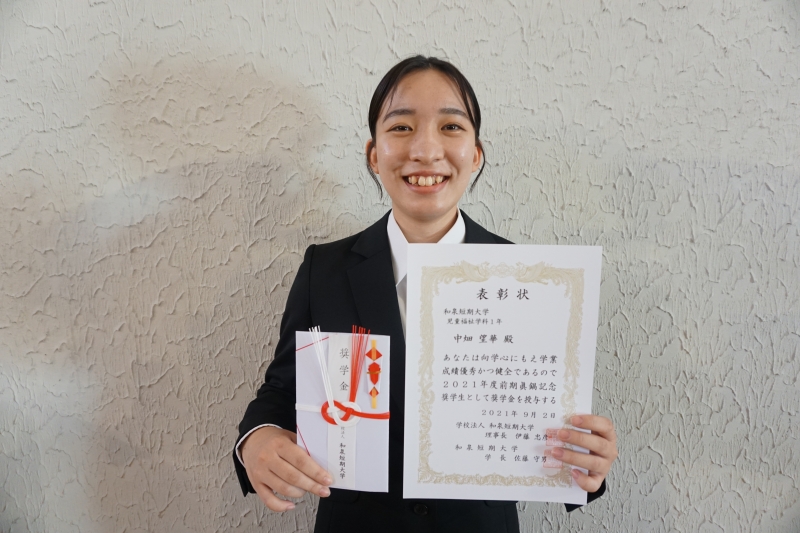 奨学金
和泉短期大学
表彰状
和泉短期大学
児童福祉学科1年
中畑 望華 殿
あなたは向学心にもえ学業
成績優秀かつ健全であるので
2021年度前期眞鍋記念
奨学生として奨学金を授与する
2021年 9月 2日
学校法人 和泉短期大学
理事長 伊藤 忠彦
和泉短期大学
学長 佐藤 守男